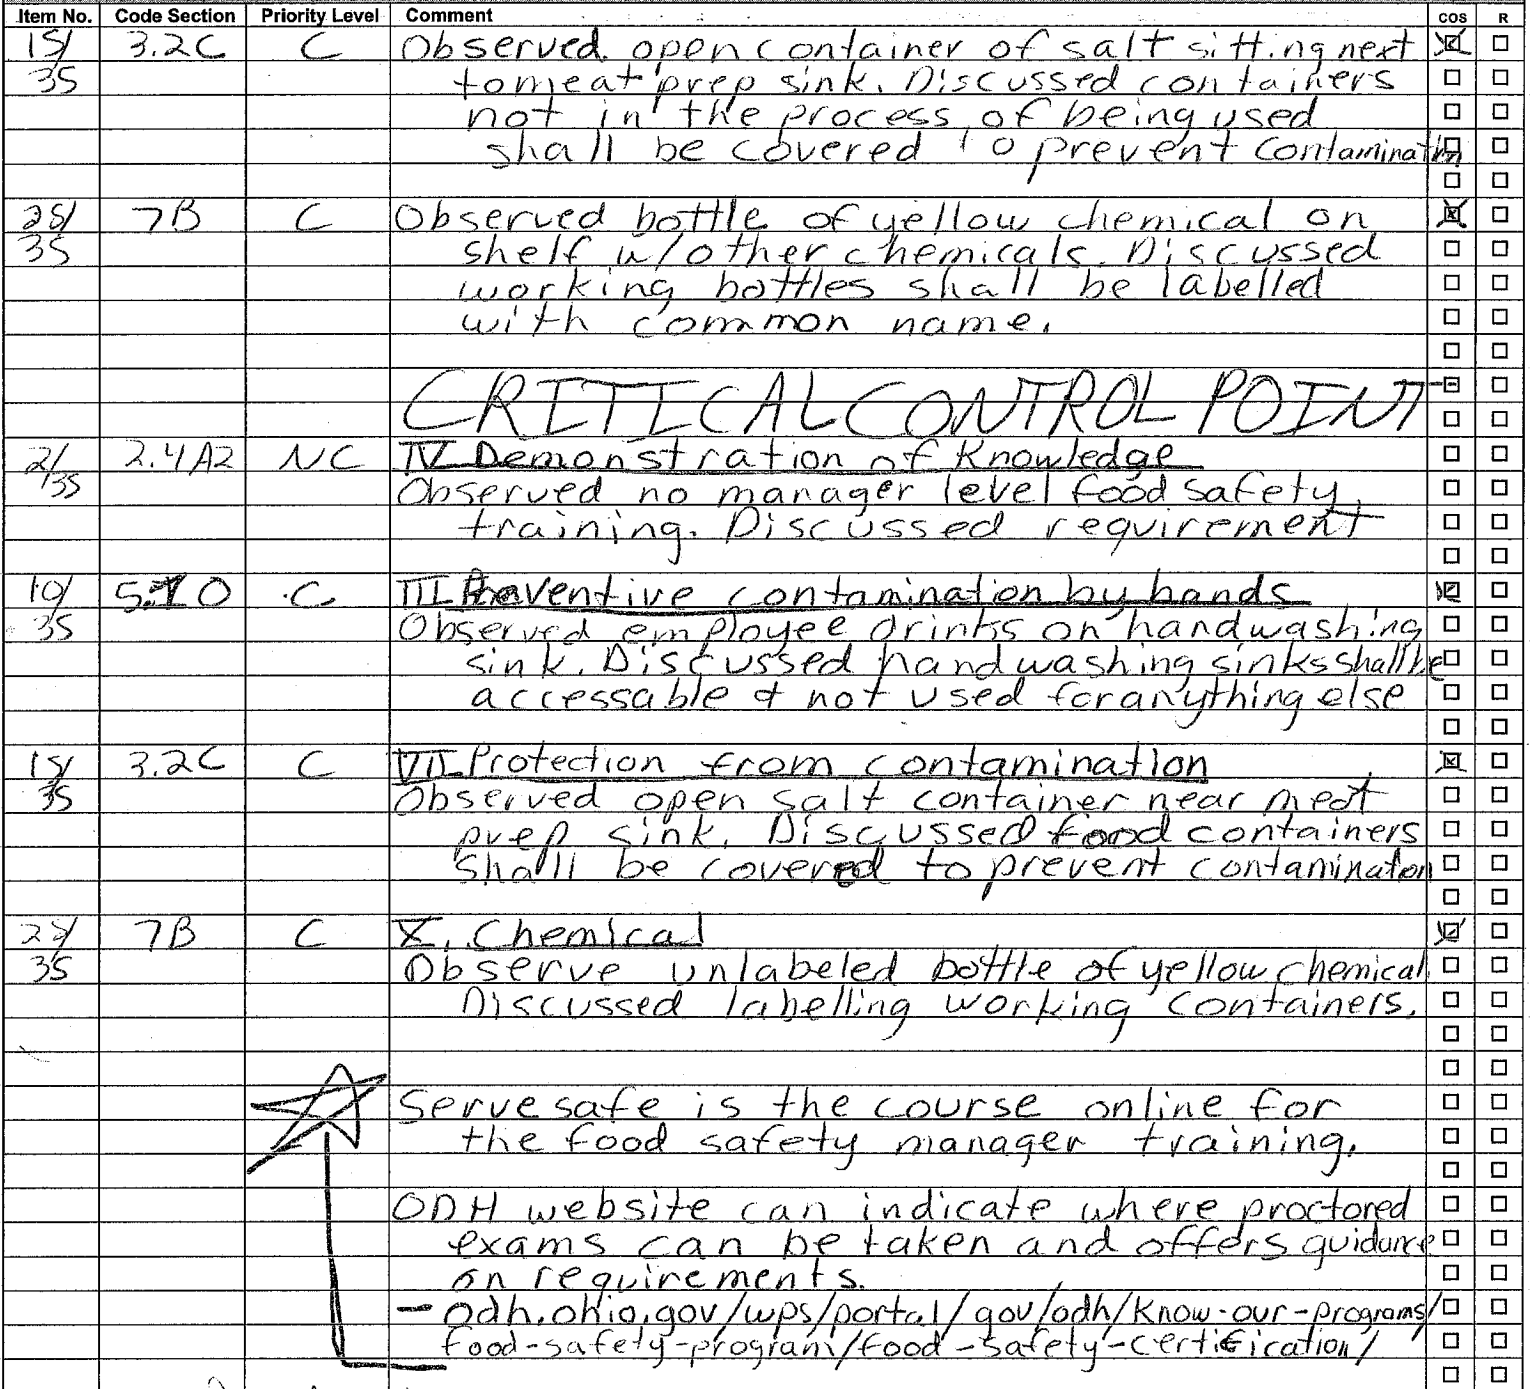 Item No. Code Section Priority Level Comment COS R
15/ 3.2C C Observed open container of salt sitting next
35 to meat prep sink. Discussed containers
not in the process of being used
shall be covered to prevent contamination
25/ 7B C Observed bottle of yellow chemical on
35 shelf w/other chemicals. Discussed
working bottles shall be labelled
with common name.
CRITICAL CONTROL POINT
2/ 2.4A2 NC IV Demonstration of Knowledge
35 Observed no manager level food safety
training. Discussed requirement
10/ C III Preventive contamination by hands
35 Observed employee drinks on handwashing
sink. Discussed handwashing sinks shall be
accessable & not used for anything else
15/ 3.2C C VII Protection from contamination
35 Observed open salt container near meat
prep sink. Discussed food containers
shall be covered to prevent contamination
25/ 7B C X. Chemical
35 Observe unlabeled bottle of yellow chemical.
Discussed labelling working containers.
Servesafe is the course online for
the food safety manager training.
ODH website can indicate where proctored
exams can be taken and offers guidance
on requirements.
- odh.ohio.gov/wps/portal/gov/odh/know-our-programs/
food-safety-program/food-safety-certification/